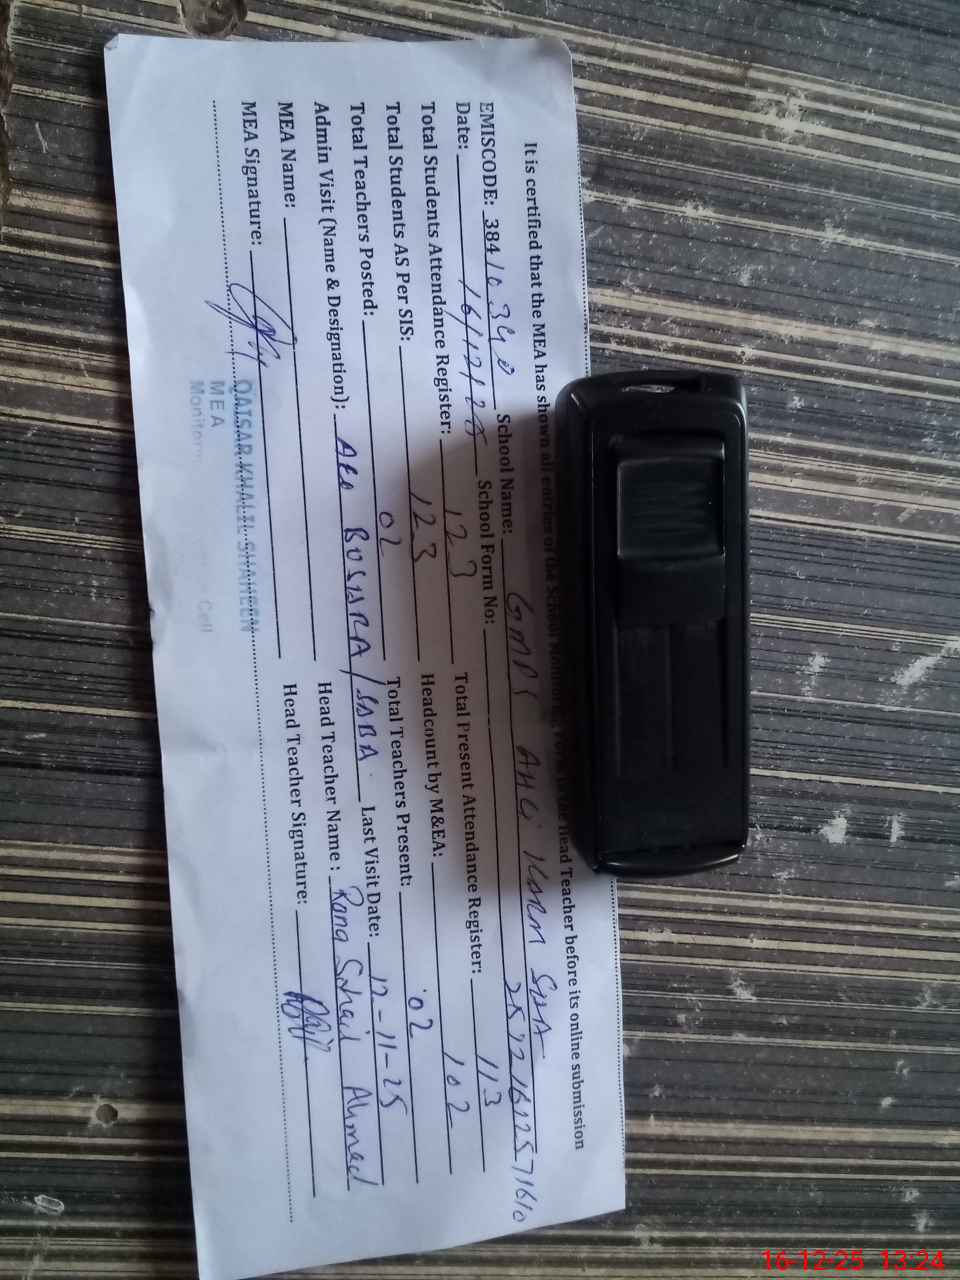 It is certified that the MEA has shown all entries of the School Monitoring Form to the Head Teacher before its online submission
EMISCODE: 38410340 School Name: GMPS AHLI KARM SHA
Date: 16/12/25 School Form No: 25721612571610
Total Students Attendance Register: 123 Total Present Attendance Register: 113
Total Students AS Per SIS: 123 Headcount by M&EA: 102
Total Teachers Posted: 02 Total Teachers Present: 02
Admin Visit (Name & Designation): AEO BUSHRA/SABA Last Visit Date: 12-11-25
MEA Name: Head Teacher Name: Rana Sohail Ahmed
MEA Signature: Head Teacher Signature:
QAISAR KHALIL SHAHEEN
MEA
Monitoring Cell
16-12-25 13:24